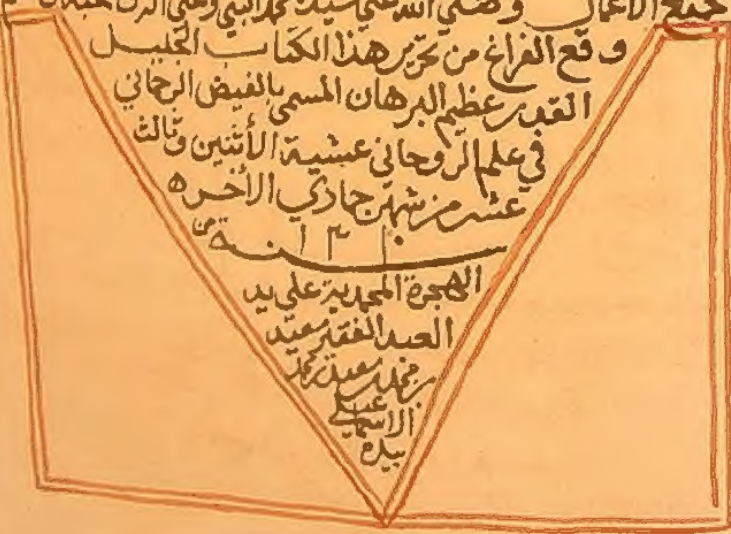 جميع الأعمال وصلى الله على سيدنا محمد النبي وعلى
وقع الفراغ من تحرير هذا الكتاب الجليل
القدر عظيم البرهان المسمى بالفيض الرحماني
في علم الروحاني عشية الأثنين وثالث
عشر من شهر جمادي الأخره
سنة ١٣١٠ من
الهجرة المحمدية على يد
العبد الفقير سعيد
بن محمد سعيد بن محمد
الاسماعيلي
بيده